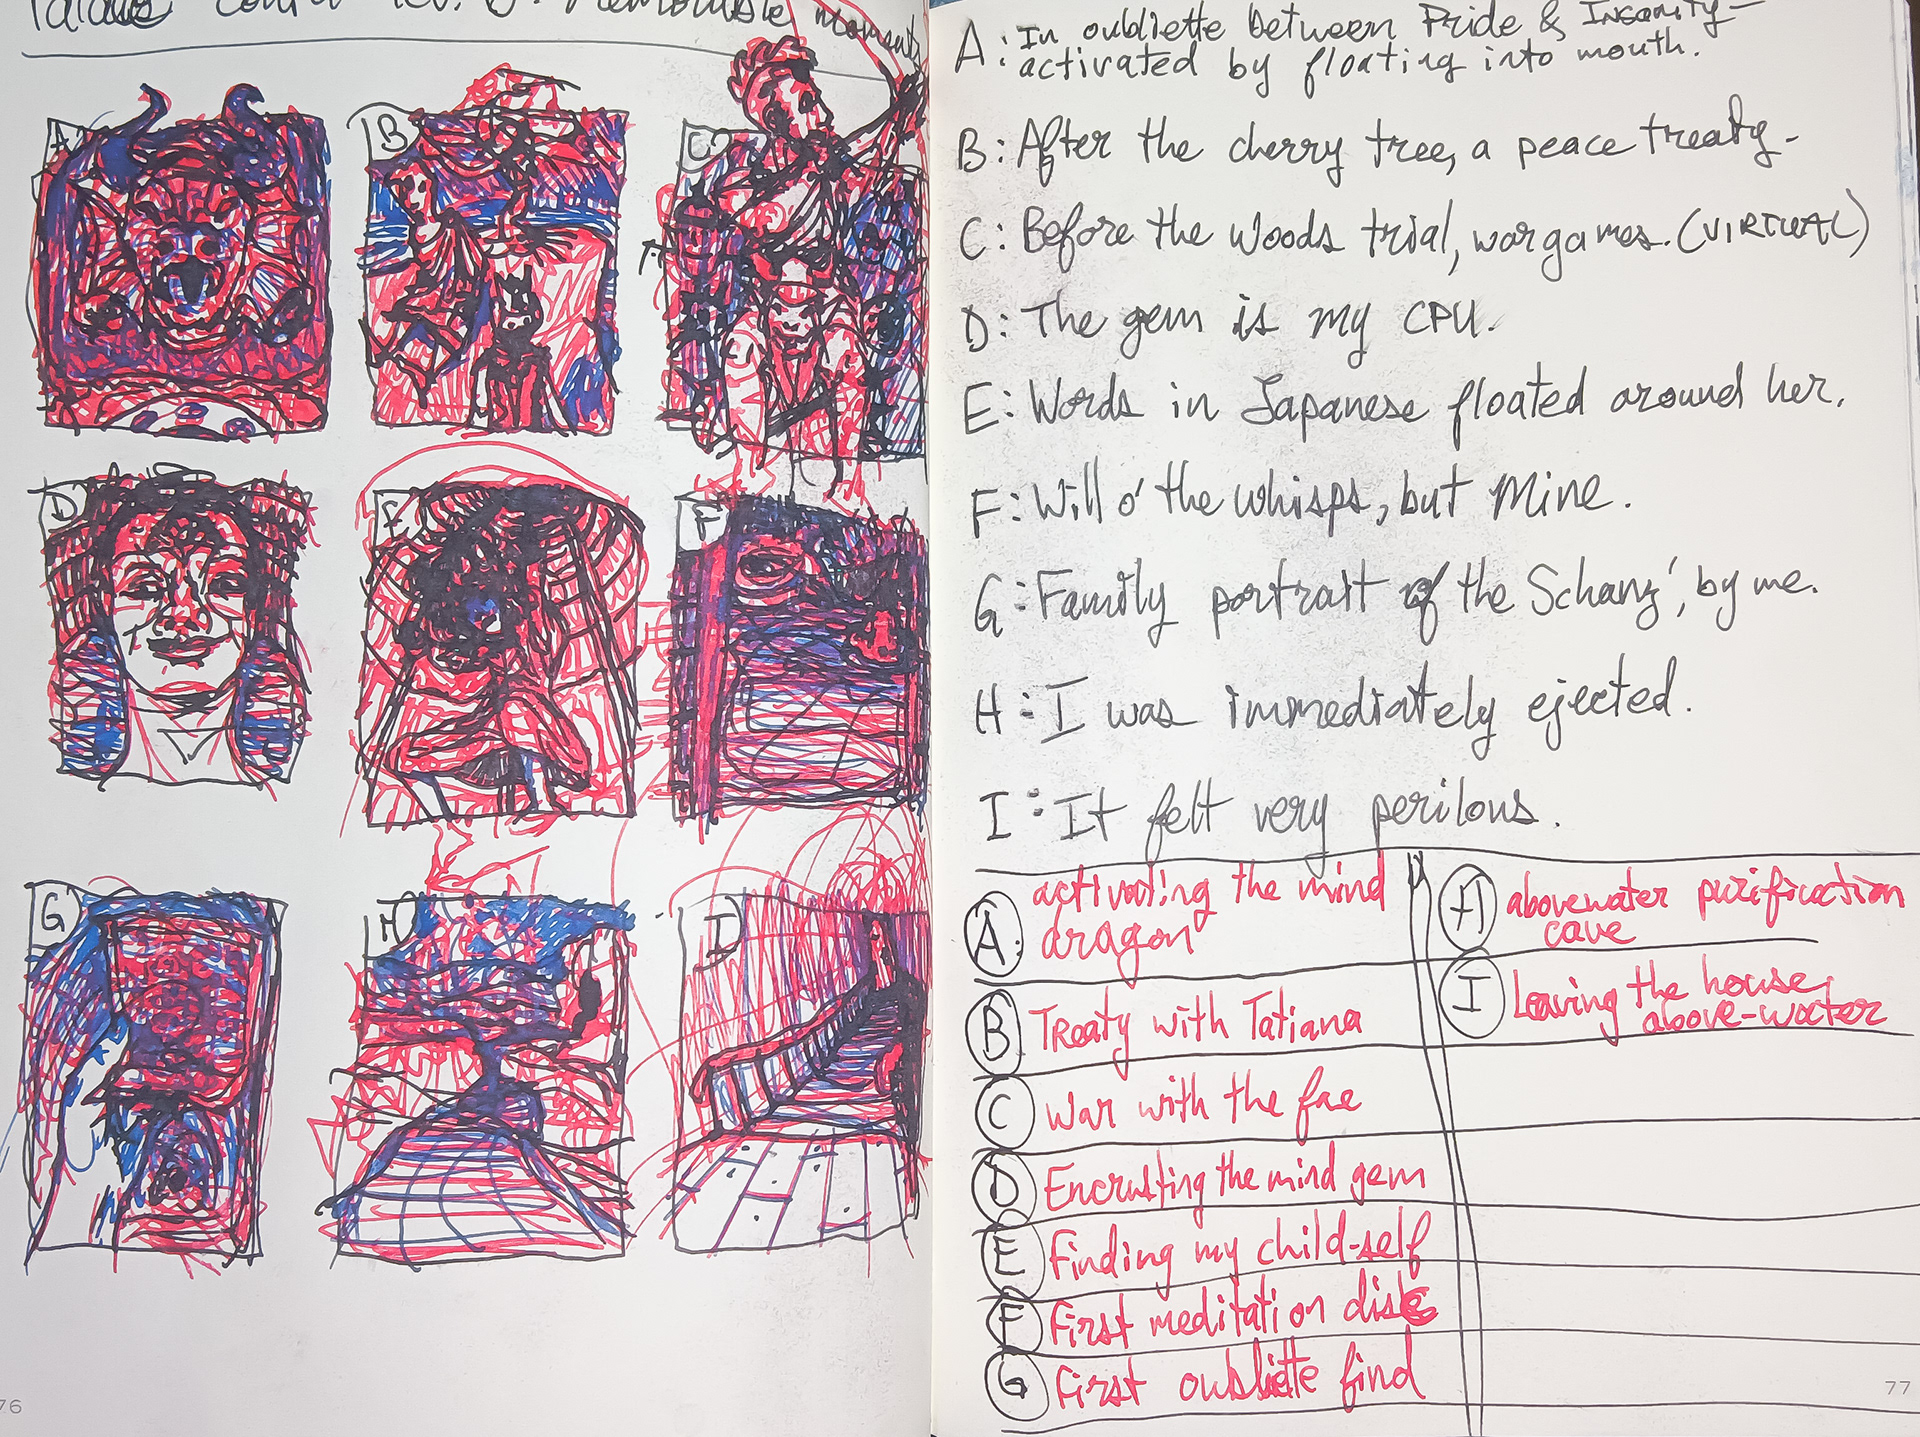 Memorable moments
A
B
C
D
E
F
G
H
I
76
A: In oubliette between Pride & Insanity-
activated by floating into mouth.
B: After the cherry tree, a peace treaty-
C: Before the woods trial, wargames. (VIRTUAL)
D: The gem is my CPU.
E: Words in Japanese floated around her.
F: Will o' the whisps, but Mine.
G: Family portrait of the Schanz', by me.
H: I was immediately ejected.
I: It felt very perilous.
A. activating the mind
dragon
B Treaty with Tatiana
C War with the fae
D Encrusting the mind gem
E Finding my child-self
F First meditation disk
G First oubliette find
H abovewater purification
cave
I Leaving the house,
above-water
77